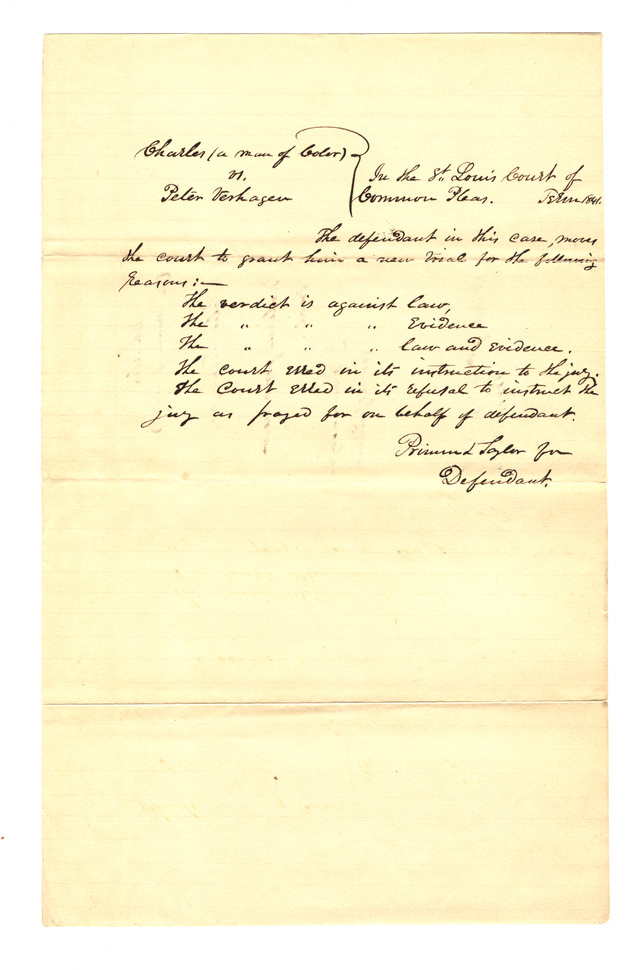 Charles (a man of Color)
vs.
Peter Verhagen
In the St. Louis Court of
Common Pleas. Term 1841.
The defendant in this case, moves
the court to grant him a new trial for the following
reasons:—
The verdict is against law,
The " " " Evidence
The " " " law and Evidence.
The court erred in its instruction to the jury.
The Court erred in its refusal to instruct the
jury as prayed for on behalf of defendant.
Primm & Taylor for
Defendant.